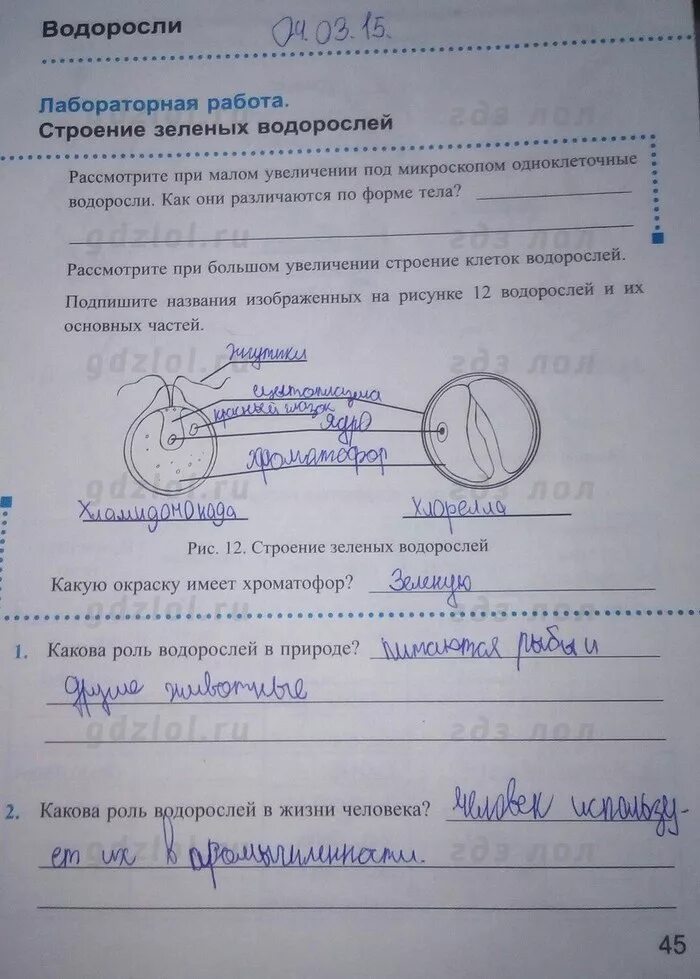 Водоросли 04.03.15.
Лабораторная работа.
Строение зеленых водорослей
Рассмотрите при малом увеличении под микроскопом одноклеточные
водоросли. Как они различаются по форме тела?
Рассмотрите при большом увеличении строение клеток водорослей.
Подпишите названия изображенных на рисунке 12 водорослей и их
основных частей.
жгутики
цитоплазма
красный глазок
ядро
хроматофор
Хламидомонада хлорелла
Рис. 12. Строение зеленых водорослей
Какую окраску имеет хроматофор? Зеленую
1. Какова роль водорослей в природе? питаются рыбы и
другие животные
2. Какова роль водорослей в жизни человека? человек использу-
ет их в промышленности.
45
gdzlol.ru
гдз лол